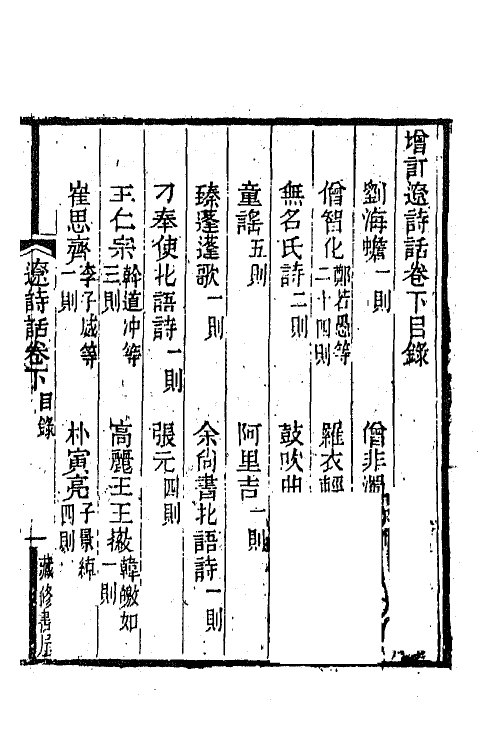 增訂遼詩話卷下目錄
劉海蟾一則 僧非濁
僧智化鄭若愚等二十四則 羅衣輕
無名氏詩二則 鼓吹曲
童謠五則 阿里吉一則
臻蓬蓬歌一則 余尙書北語詩一則
刁奉使北語詩一則 張元四則
王仁宗斡道冲等三則 高麗王王徽韓繳如一則
崔思齊李子威等一則 朴寅亮子景綽四則
遼詩話卷下 目錄 一 藏修書屋